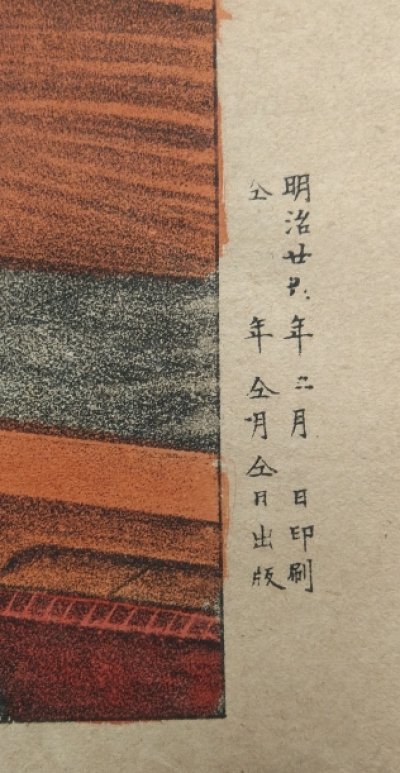 明治廿六年二月 日印刷
仝 年仝月仝日出版